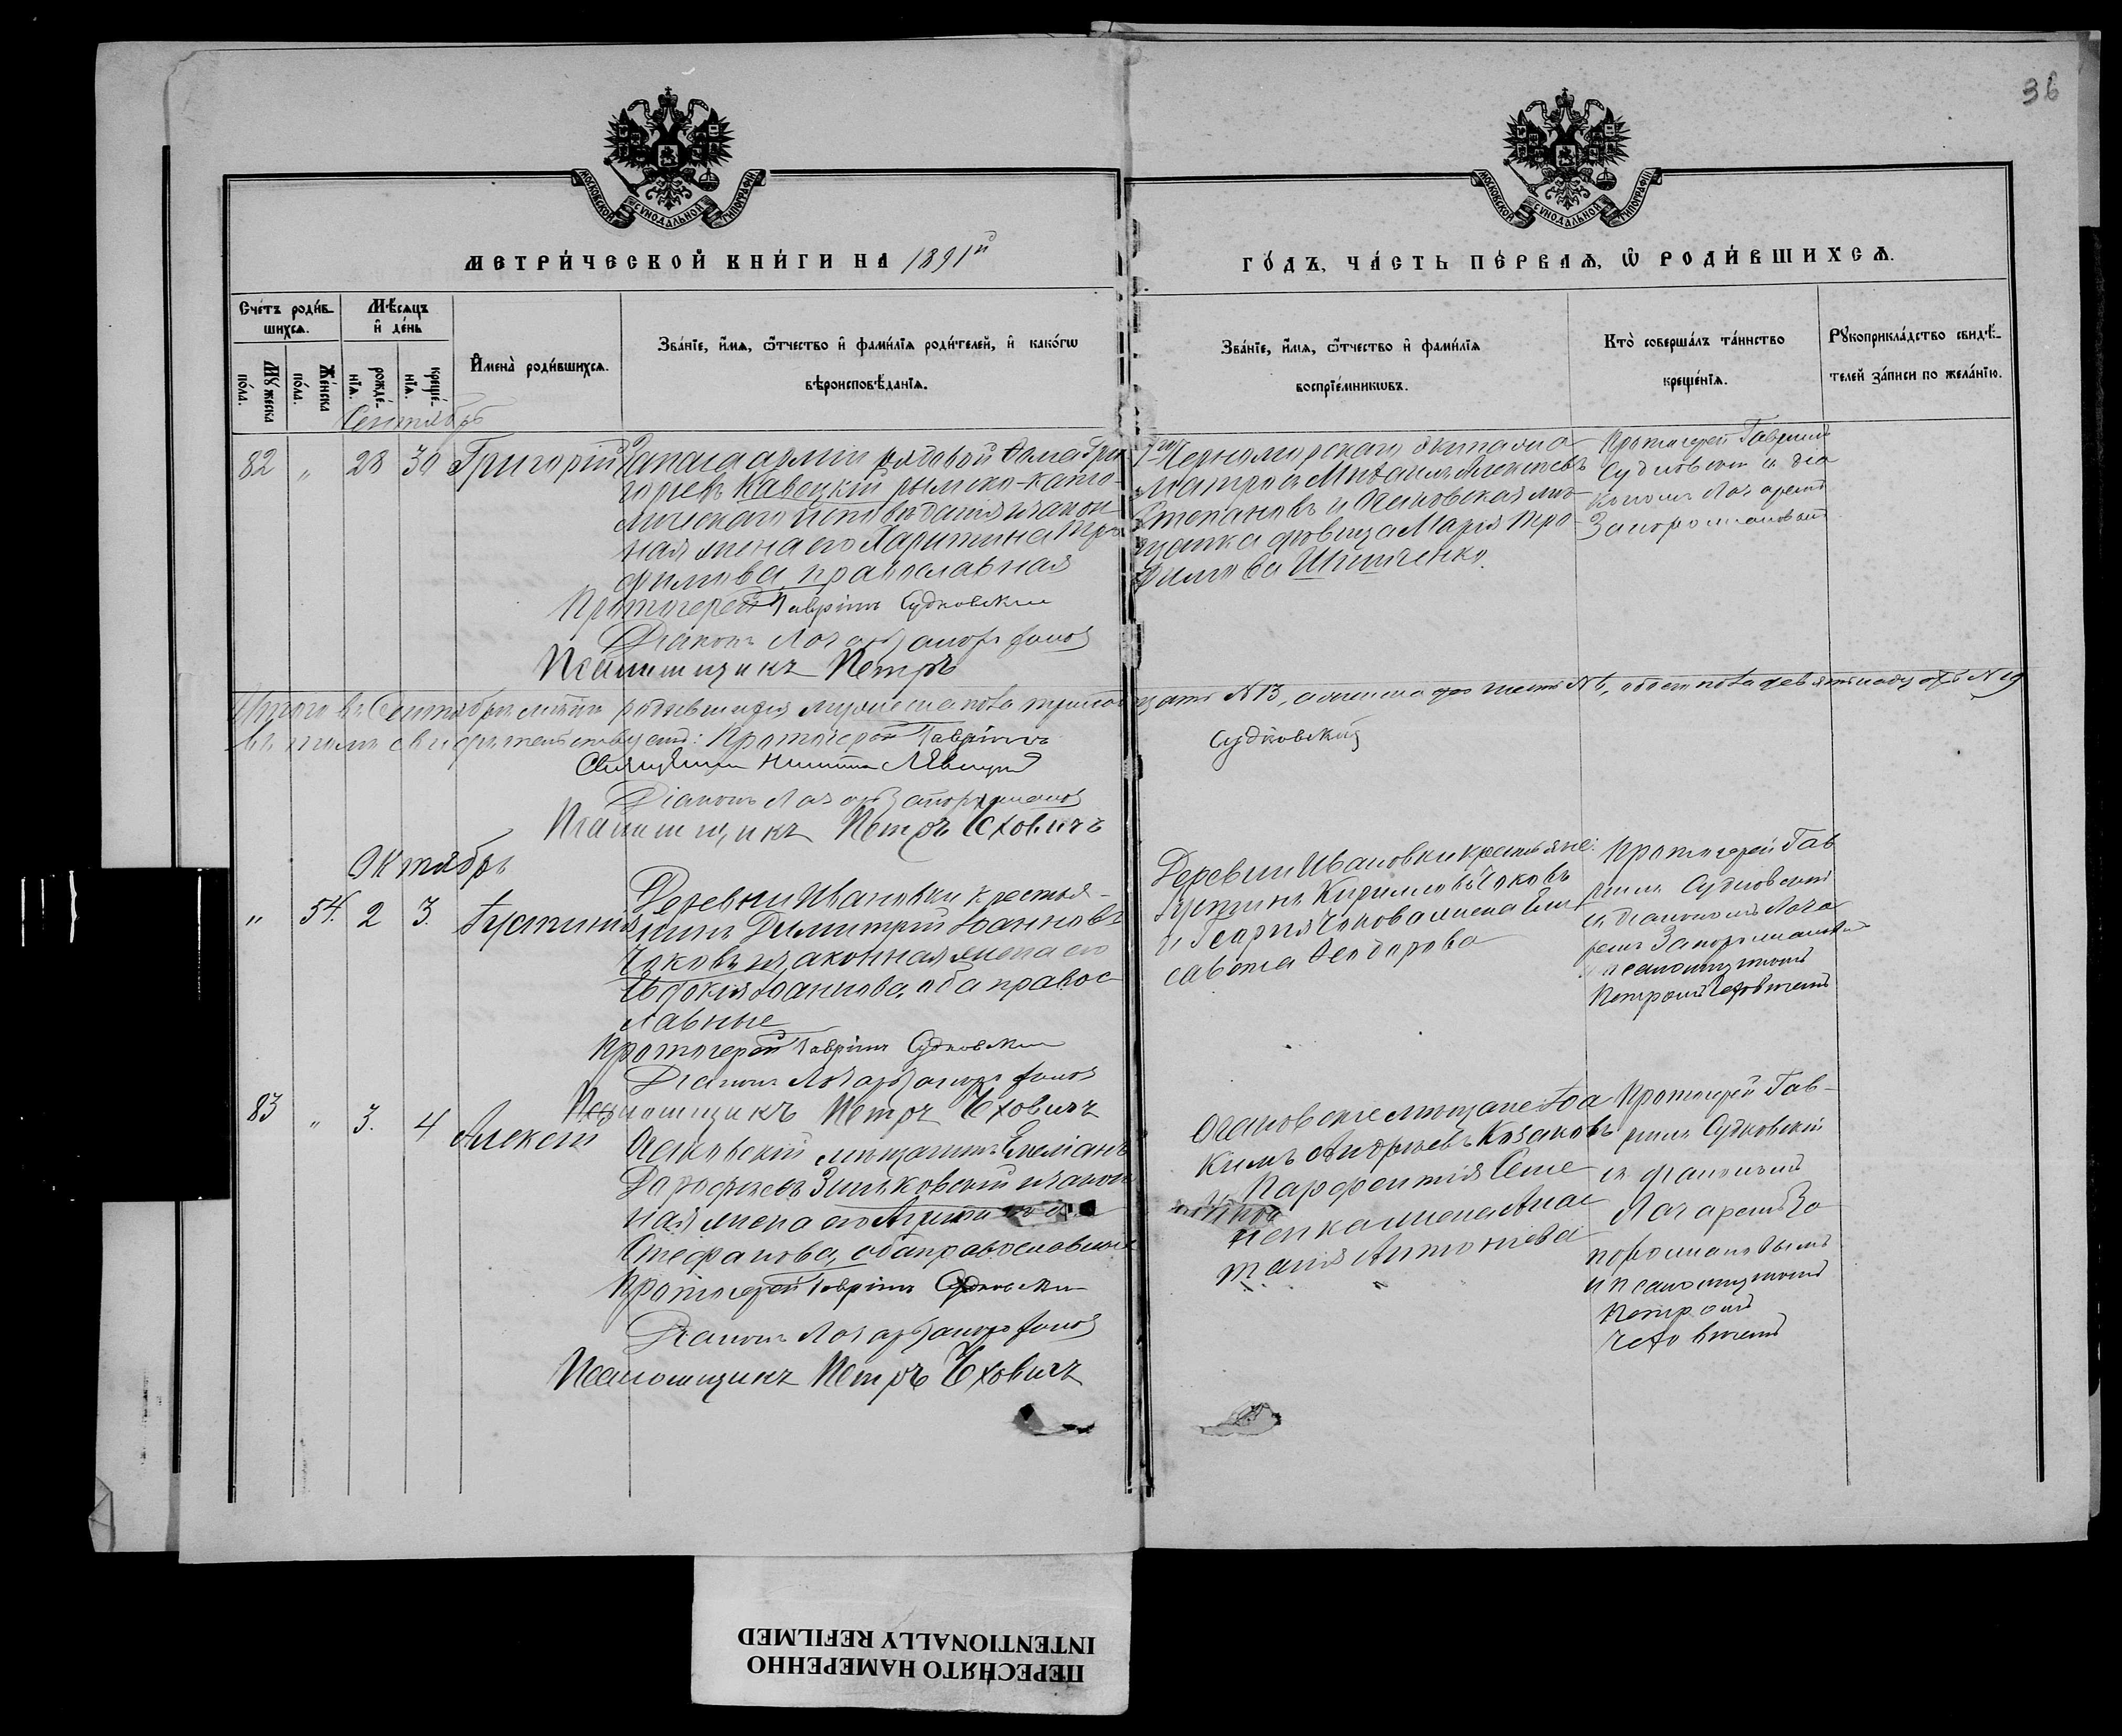 36
МОСКОВСКОЙ СѴНОДАЛЬНОЙ ТИПОГРАФІИ
МОСКОВСКОЙ СѴНОДАЛЬНОЙ ТИПОГРАФІИ
МЕТРИ́ЧЕСКОЙ КНИ́ГИ НА 1891й
ГО́ДЪ, ЧА́СТЬ ПЕ́РВАЯ, Ѿ РОДИ́ВШИХСЯ.
Счетъ роди́вшихся.
Му́жеска по́ла.
Же́нска по́ла.
Мѣсяцъ и де́нь
рожде́нія.
креще́нія.
Имена̀ роди́вшихся.
Зва́ніе, и́мя, ѻ́тчество и фами́лія роди́телей, и како́гѡ
вѣроисповѣ́данія.
Зва́ніе, и́мя, ѻ́тчество и фами́лія
воспріе́мниковъ.
Кто̀ соверша́лъ та́инство
креще́нія.
Рꙋкоприкла́дство свидѣ́-
телей за́писи по жела́нію.
Сентябрь
82 " 28 30 Григорій
Запаса арміи рядовой Ѳома Гри
горьевъ Кавецкій римско-като-
лическаго исповѣданія и закон
ная жена его Харитина Тро
фимова православная
Протоіерей Гавріилъ Судковскій
Діаконъ Лазарь Запорожановъ
Псаломщикъ Петръ
Черноморскаго экипажа
матросъ Михаилъ Алексѣевъ
Степановъ и Очаковская мѣ-
щанка дѣвица Марія Тро-
фимова
Протоіерей Гавріилъ
Судковскій съ діа
кономъ Лазаремъ
Запорожановымъ
Итого въ Сентябрѣ мѣсяцѣ родившихся мужеска пола тринадцать N 13, а женска пола шесть N 6, обоего пола девятнадцать N 19
въ чемъ свидѣтельствуемъ: Протоіерей Гавріилъ Судковскій
Священникъ Никита Левицкій
Діаконъ Лазарь Запорожановъ
Псаломщикъ Петръ Чеховичъ
Октябрь
" 54. 2 3. Іустинія
Деревни Ивановки крестья-
нинъ Димитрій Іоанновъ
Чоковъ и законная жена его
Евдокія Іоаннова, оба правос
лавные
Протоіерей Гавріилъ Судковскій
Діаконъ Лазарь Запорожановъ
Псаломщикъ Петръ Чеховичъ
Деревни Ивановки крестьяне:
Іустинъ Кирилловъ Чоковъ
и Георгія Чокова жена Ели
савета Ѳеодорова
Протоіерей Гав
ріилъ Судковскій
съ діакономъ Лаза
ремъ Запорожановымъ
и псаломщикомъ
Петромъ Чеховичемъ
83 " 3. 4 Алексій
Очаковскій мѣщанинъ Емеліанъ
Дороѳеевъ Зиньковскій и закон
ная жена его
Стефанова, оба православные
Протоіерей Гавріилъ Судковскій
Діаконъ Лазарь Запорожановъ
Псаломщикъ Петръ Чеховичъ
Очаковскіе мѣщане Іоа
кимъ Андреевъ Козаковъ
и Парфентія Семе
ненка жена Анас
тасія Антоніева
Протоіерей Гав-
ріилъ Судковскій
съ діакономъ
Лазаремъ За
порожановымъ
и псаломщикомъ
Петромъ
Чеховичемъ
ПЕРЕСНЯТО НАМЕРЕННО
INTENTIONALLY REFILMED